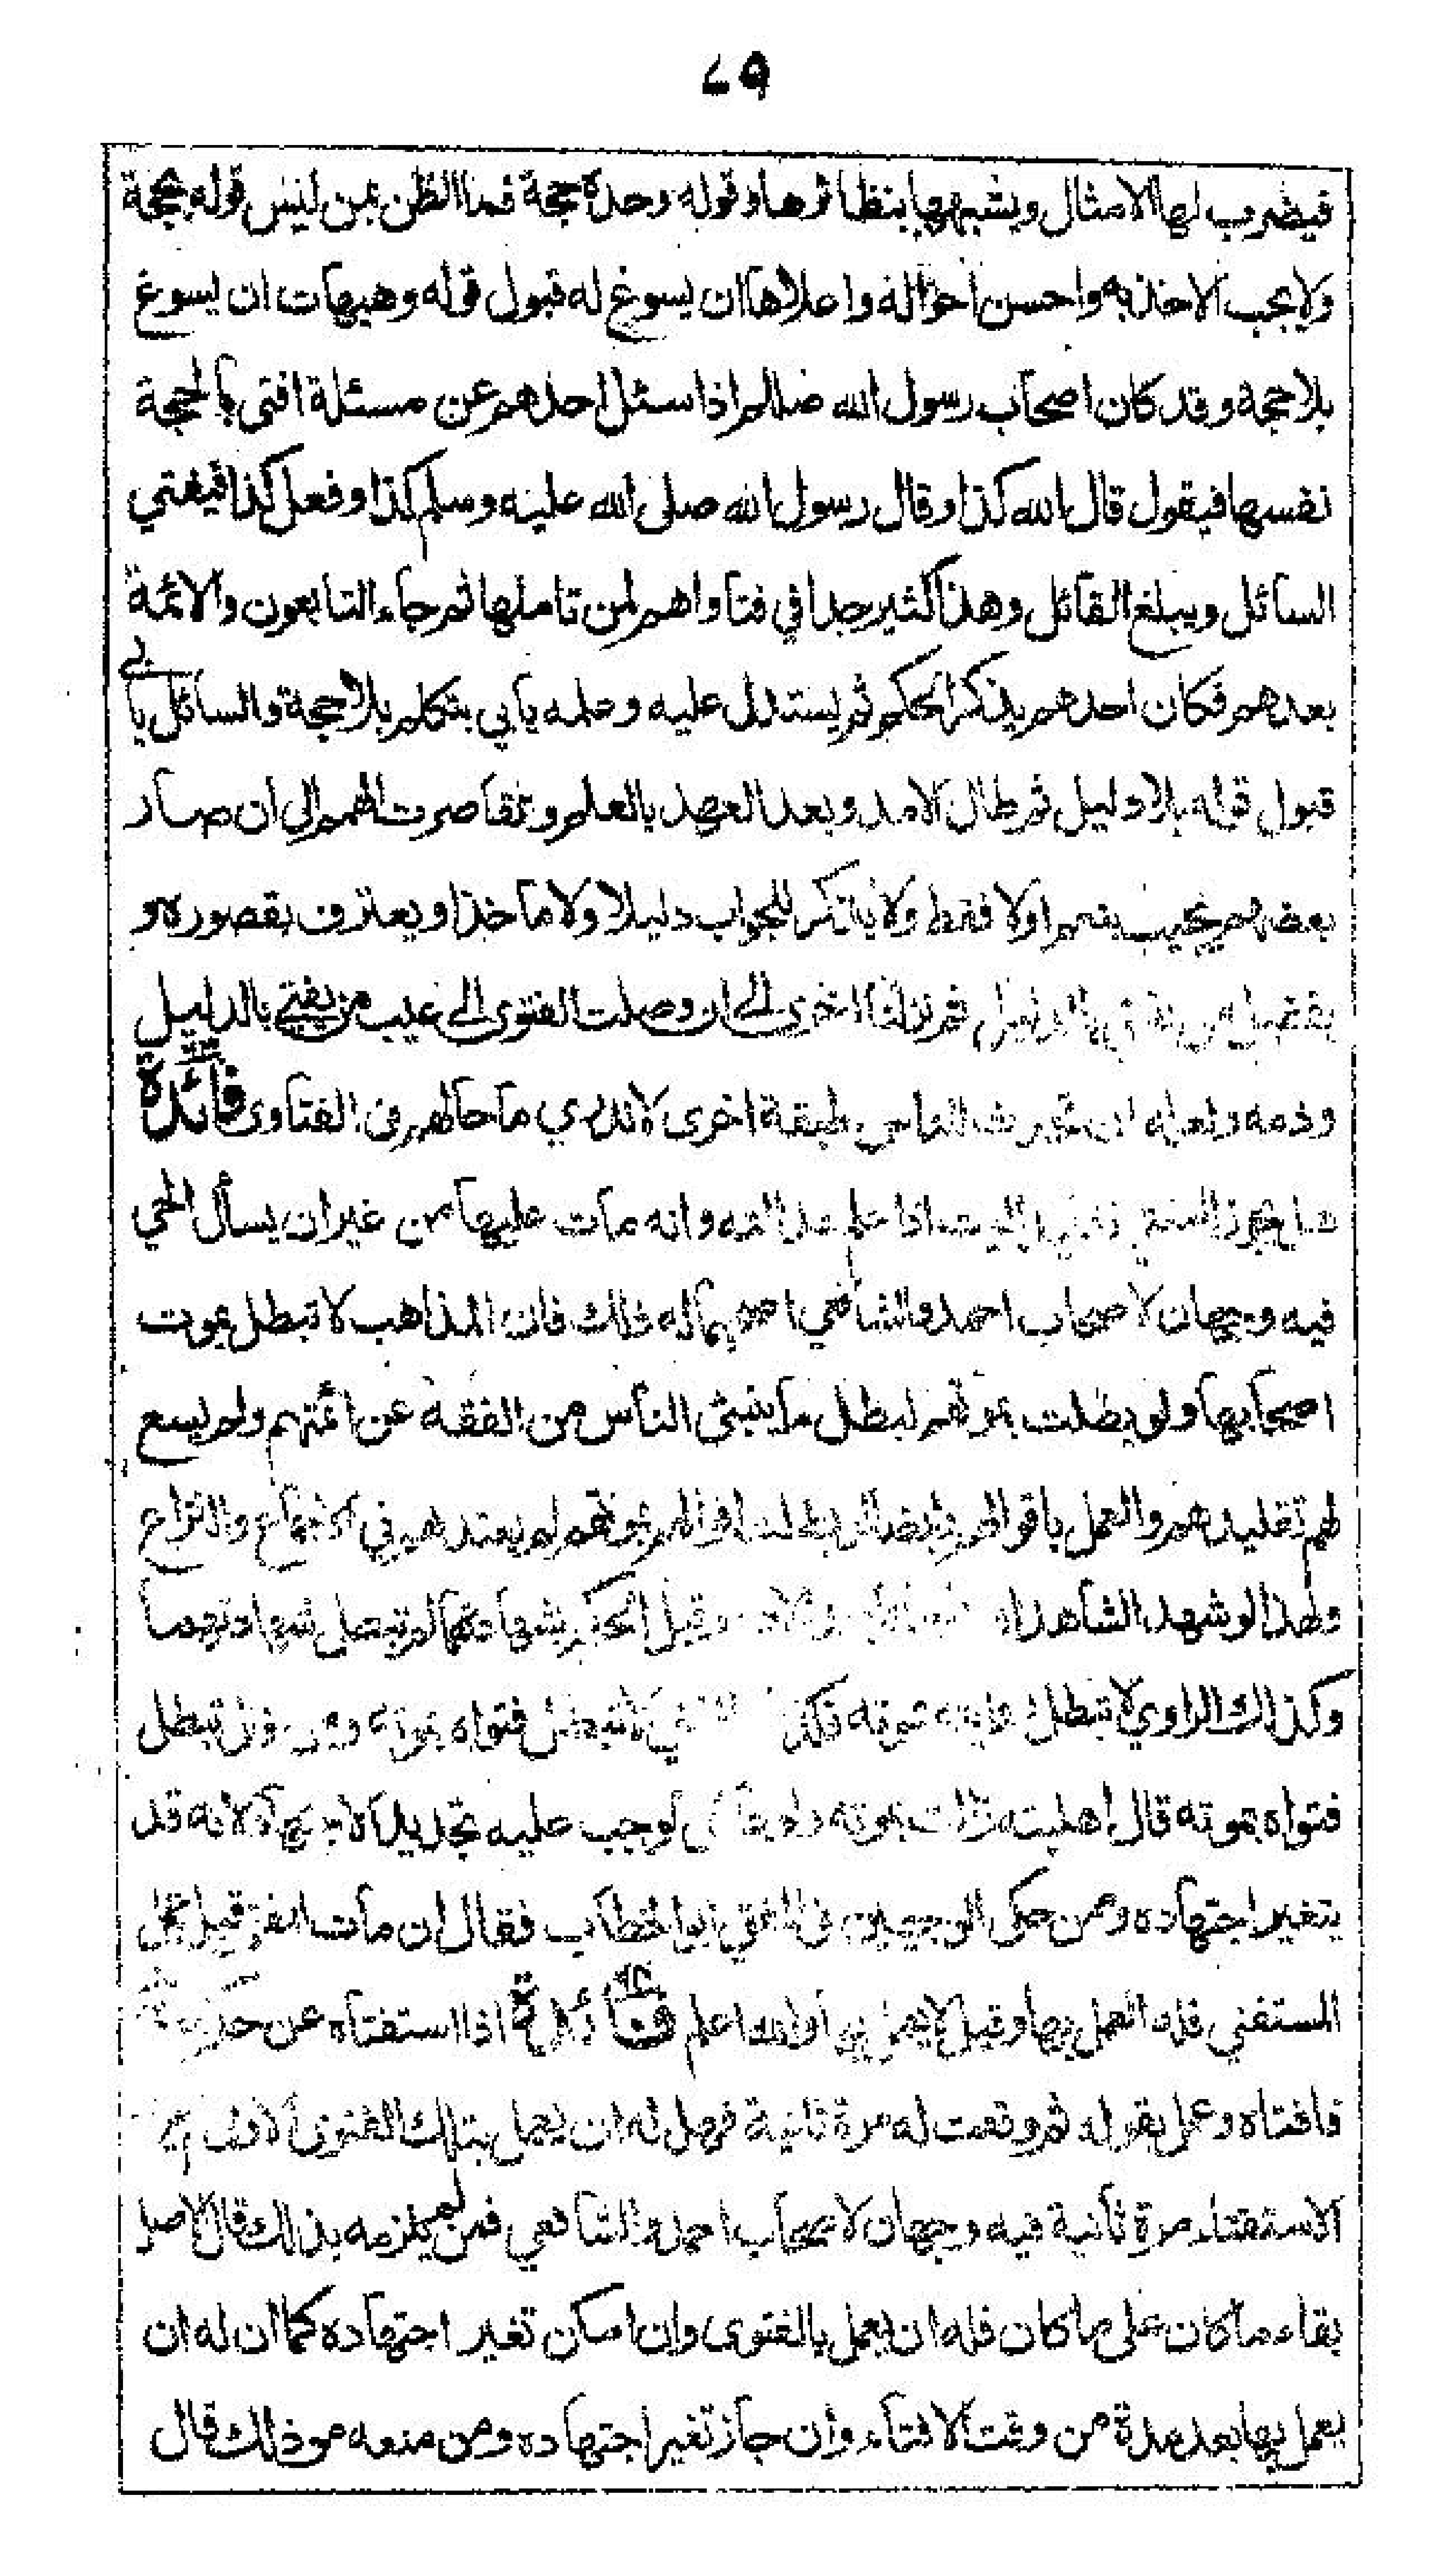 ٧٩
فيضرب لها الامثال ويشبهها بنظائرها وقوله وحده حجة فما الظن بمن ليس قوله بحجة
ولا يجب الاخذ به واحسن احواله واعلاها ان يسوغ له قبول قوله وهيهات ان يسوغ
بلا حجة وقد كان اصحاب رسول الله صلالم اذا سئل احدهم عن مسئلة افتى بالحجة
نفسها فيقول قال الله كذا وقال رسول الله صلى الله عليه وسلم كذا وفعل كذا فيفتي
السائل ويبلغ القائل وهذا كثير جدا في فتاواهم لمن تاملها ثم جاء التابعون والائمة
بعدهم فكان احدهم يذكر الحكم ثم يستدل عليه وعلمه يابى يتكلم بلا حجة والسائل يابى
قبول قوله بلا دليل ثم طال الامد وبعد العهد بالعلم وتقاصرت الهمم الى ان صار
بعضهم يجيب بنعم او لا فقط ولا يذكر للجواب دليلا ولا ماخذا ويعترف بقصوره و
بفضل من يفتي بالدليل ثم نزلنا اخرى الى ان وصلت الفتوى الى عيب من يفتي بالدليل
وذمه ولعله ان الناس طبقة اخرى لا ندري ما حالهم في الفتاوى فائدة
هل يجوز اذا علم عدالته وانه مات عليها من غير ان يسأل الحي
فيه وجهان لاصحاب احمد والشافعي اصحهما له ذلك فان المذاهب لا تبطل بموت
اصحابها ولو بطلت بموتهم لبطل ما بيني الناس من الفقه عن ائمتهم ولم يسع
لهم تقليدهم والعمل باقوالهم وايضا لو بطلت اقوالهم بموتهم لم يعتد هم في الاجماع والنزاع
ولهذا لو شهد الشاهدان وقبل الحكم بشهادتهما لم تبطل شهادتهما
وكذلك الراوي لا تبطل روايته بموته فكذا لا تبطل فتواه بموته ومن تبطل
فتواه بموته قال اهليته زالت بموته ولو عاش لوجب عليه تجديد الاجتهاد لانه قد
يتغير اجتهاده وممن حكى الوجهين في المفتي ابو الخطاب فقال ان مات المفتي قبل عمل
المستفتي فله العمل بها وقيل لا يعمل بها والله اعلم فائدة اذا استفتاه عن
فافتاه وعمل بقوله ثم وقعت له مرة ثانية فهل له ان يعمل بتلك الفتوى الاولى
الاستفتاء مرة ثانية فيه وجهان لاصحاب احمد والشافعي فمن لم يلزمه بذلك قال الاصل
بقاء ما كان على ما كان فله ان يعمل بالفتوى وان امكن تغير اجتهاده كما ان له ان
يعمل بها بعد مدة من وقت الافتاء وان جاز تغير اجتهاده ومن منعه من ذلك قال